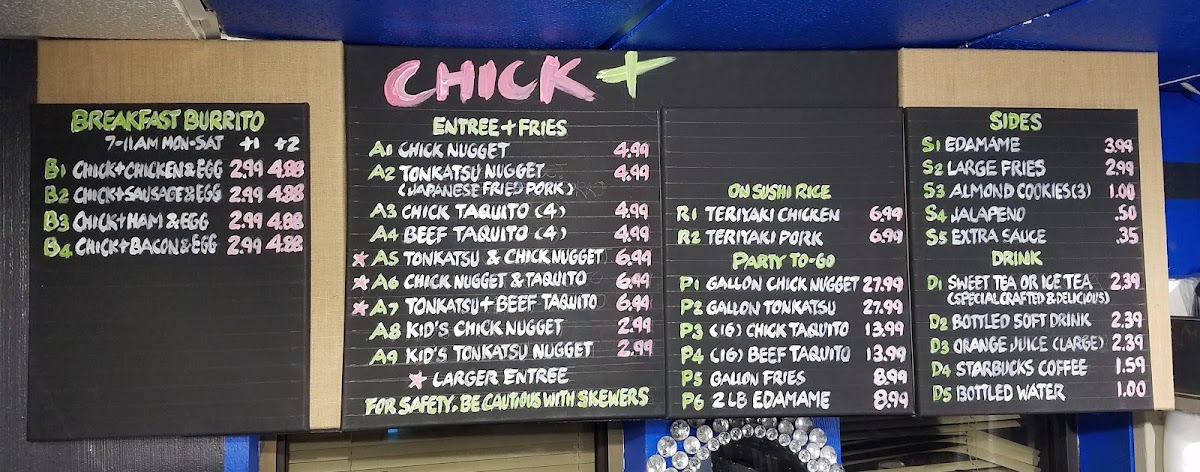 CHICK +
BREAKFAST BURRITO
7-11AM MON-SAT #1 #2
B1 CHICK+CHICKEN & EGG 2.99 4.88
B2 CHICK+SAUSAGE & EGG 2.99 4.88
B3 CHICK+HAM & EGG 2.99 4.88
B4 CHICK+BACON & EGG 2.99 4.88
ENTREE + FRIES
A1 CHICK NUGGET 4.99
A2 TONKATSU NUGGET 4.99
(JAPANESE FRIED PORK)
A3 CHICK TAQUITO (4) 4.99
A4 BEEF TAQUITO (4) 4.99
★ A5 TONKATSU & CHICK NUGGET 6.99
★ A6 CHICK NUGGET & TAQUITO 6.99
★ A7 TONKATSU + BEEF TAQUITO 6.99
A8 KID'S CHICK NUGGET 2.99
A9 KID'S TONKATSU NUGGET 2.99
★ LARGER ENTREE
FOR SAFETY, BE CAUTIOUS WITH SKEWERS
ON SUSHI RICE
R1 TERIYAKI CHICKEN 6.99
R2 TERIYAKI PORK 6.99
PARTY TO-GO
P1 GALLON CHICK NUGGET 27.99
P2 GALLON TONKATSU 27.99
P3 (16) CHICK TAQUITO 13.99
P4 (16) BEEF TAQUITO 13.99
P5 GALLON FRIES 8.99
P6 2 LB EDAMAME 8.99
SIDES
S1 EDAMAME 3.99
S2 LARGE FRIES 2.99
S3 ALMOND COOKIES (3) 1.00
S4 JALAPENO .50
S5 EXTRA SAUCE .35
DRINK
D1 SWEET TEA OR ICE TEA 2.39
(SPECIAL CRAFTED & DELICIOUS)
D2 BOTTLED SOFT DRINK 2.39
D3 ORANGE JUICE (LARGE) 2.39
D4 STARBUCKS COFFEE 1.59
D5 BOTTLED WATER 1.00